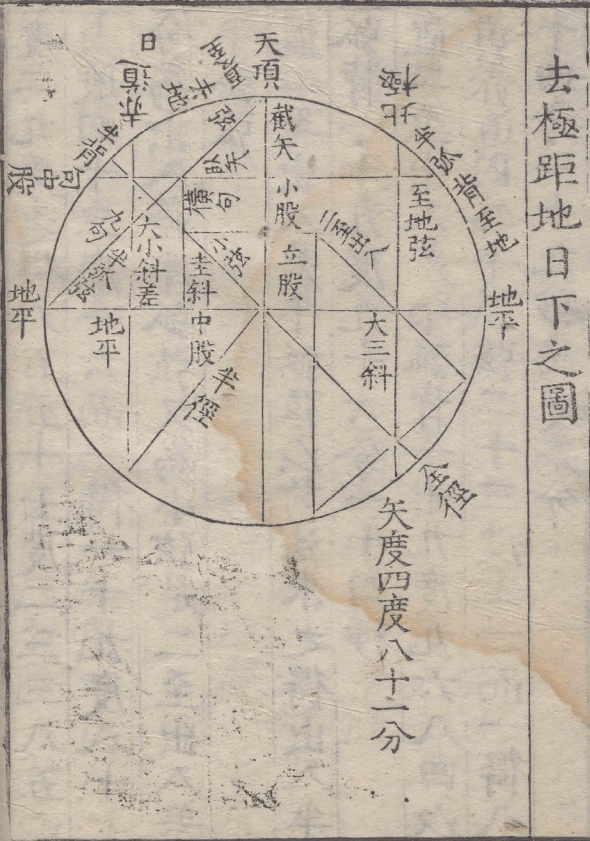 去極距地日下之圖
天頂
日
赤道
北極
半弧背至地
半背
句中股
截矢
小股
立股
橫句
小弦
大小斜差
半弧弦
至地弦
二至出入
大三斜
中股
半徑
全徑
地平
地平
地平
矢度四度八十一分